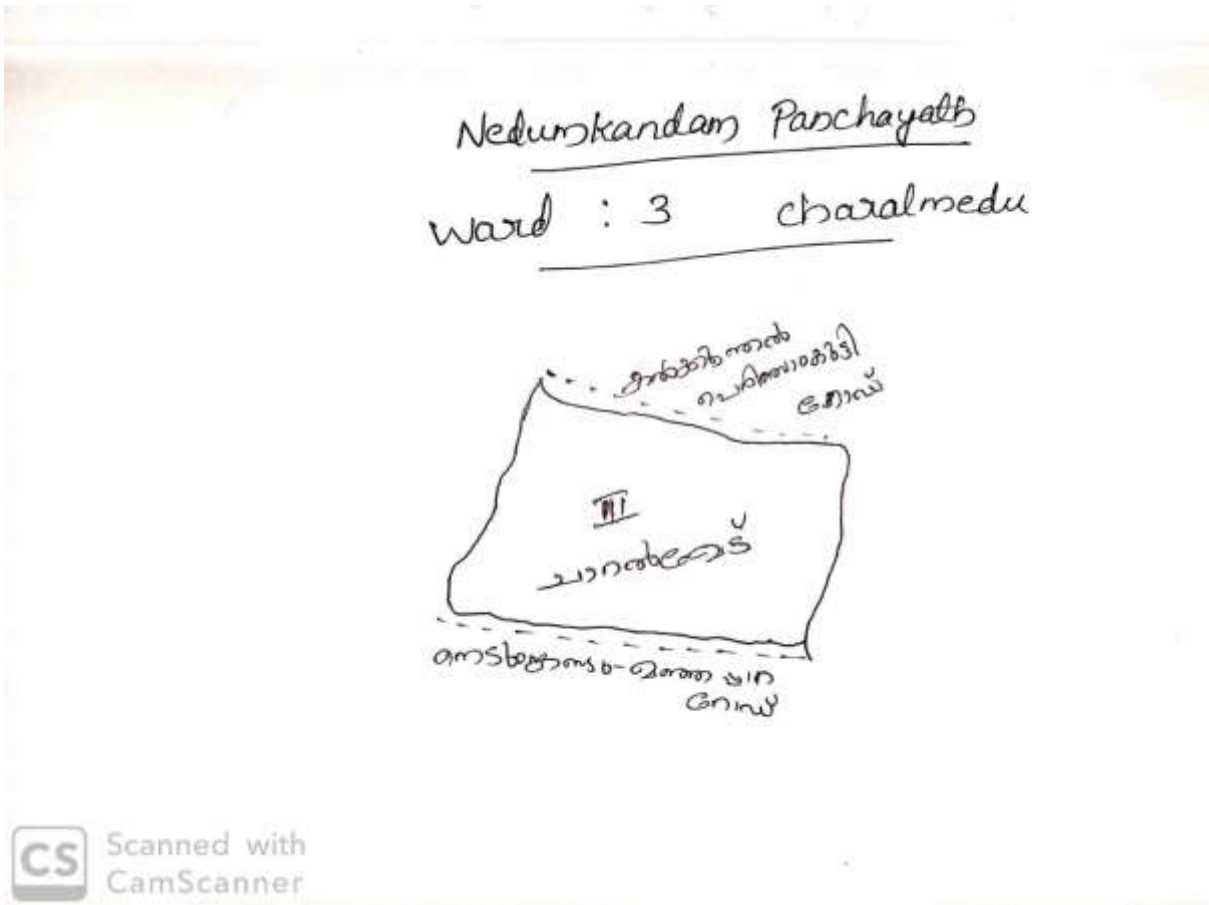 Nedumkandam Panchayath
Ward : 3 charalmedu
റോഡ്
III
ചാറൽമേട്
നെടുങ്കണ്ടം-മഞ്ഞപ്പാറ
റോഡ്
CS Scanned with
CamScanner